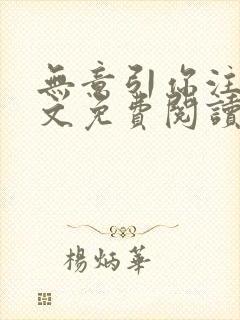 無意引你注
文免費閱讀
楊炳華